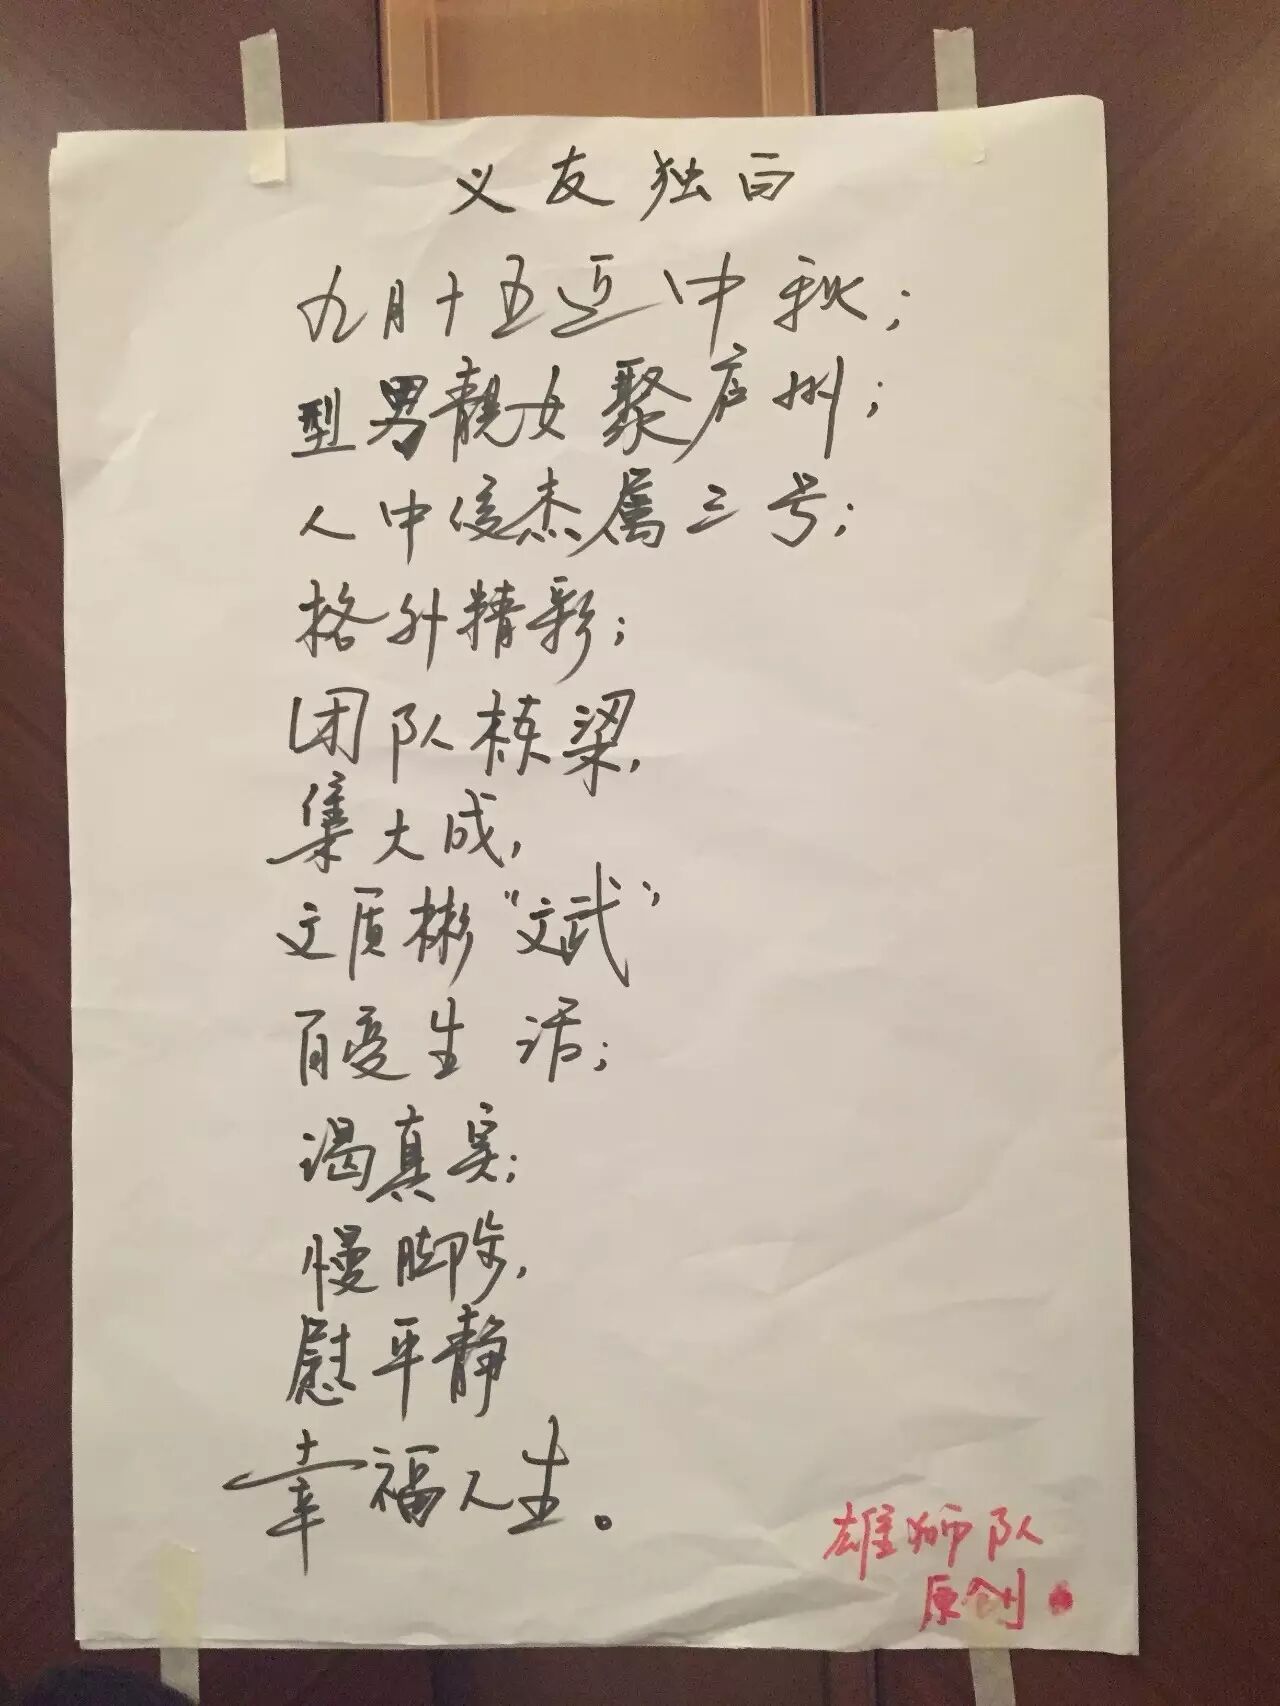 义友独白
九月十五迎中秋；
型男靓女聚庐州；
人中俊杰属三号；
格外精彩；
团队栋梁，
集大成，
文质彬“文武”，
百爱生活；
渴真实；
慢脚步，
慰平静
幸福人生。
雄狮队
原创